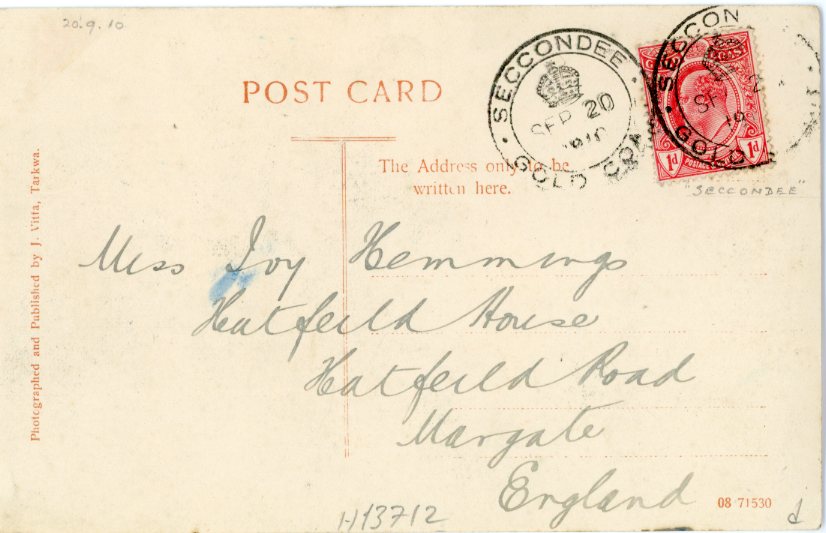 20.9.10
POST CARD
SECCONDEE
SEP 20
1910
GOLD COA
SECCON
GOLD
1d 1d
"SECCONDEE"
The Address only to be
written here.
Photographed and Published by J. Vitta, Tarkwa.
Miss Ivy Hemmings
Hatfeild House
Hatfeild Road
Margate
England
08 71530
H13712
d